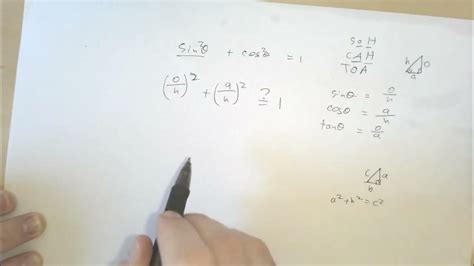 sin²θ + cos²θ = 1
(o/h)² + (a/h)² ≟ 1
SOH
CAH
TOA
h o
a
sinθ = o/h
cosθ = a/h
tanθ = o/a
c a
b
a² + b² = c²